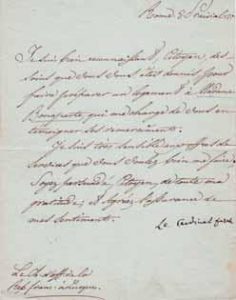 Je suis bien reconnaissant, Citoyen, des
soins que vous vous êtes donnés pour
faire préparer un logement à Madame
Bonaparte, qui me charge de vous en
témoigner ses remerciements.
Je suis très sensible aux offres de
services que vous voulez bien me faire.
Soyez persuadé, Citoyen, de toute ma
gratitude, et agréez l'assurance de
mes sentiments.
Le Cardinal Fesch